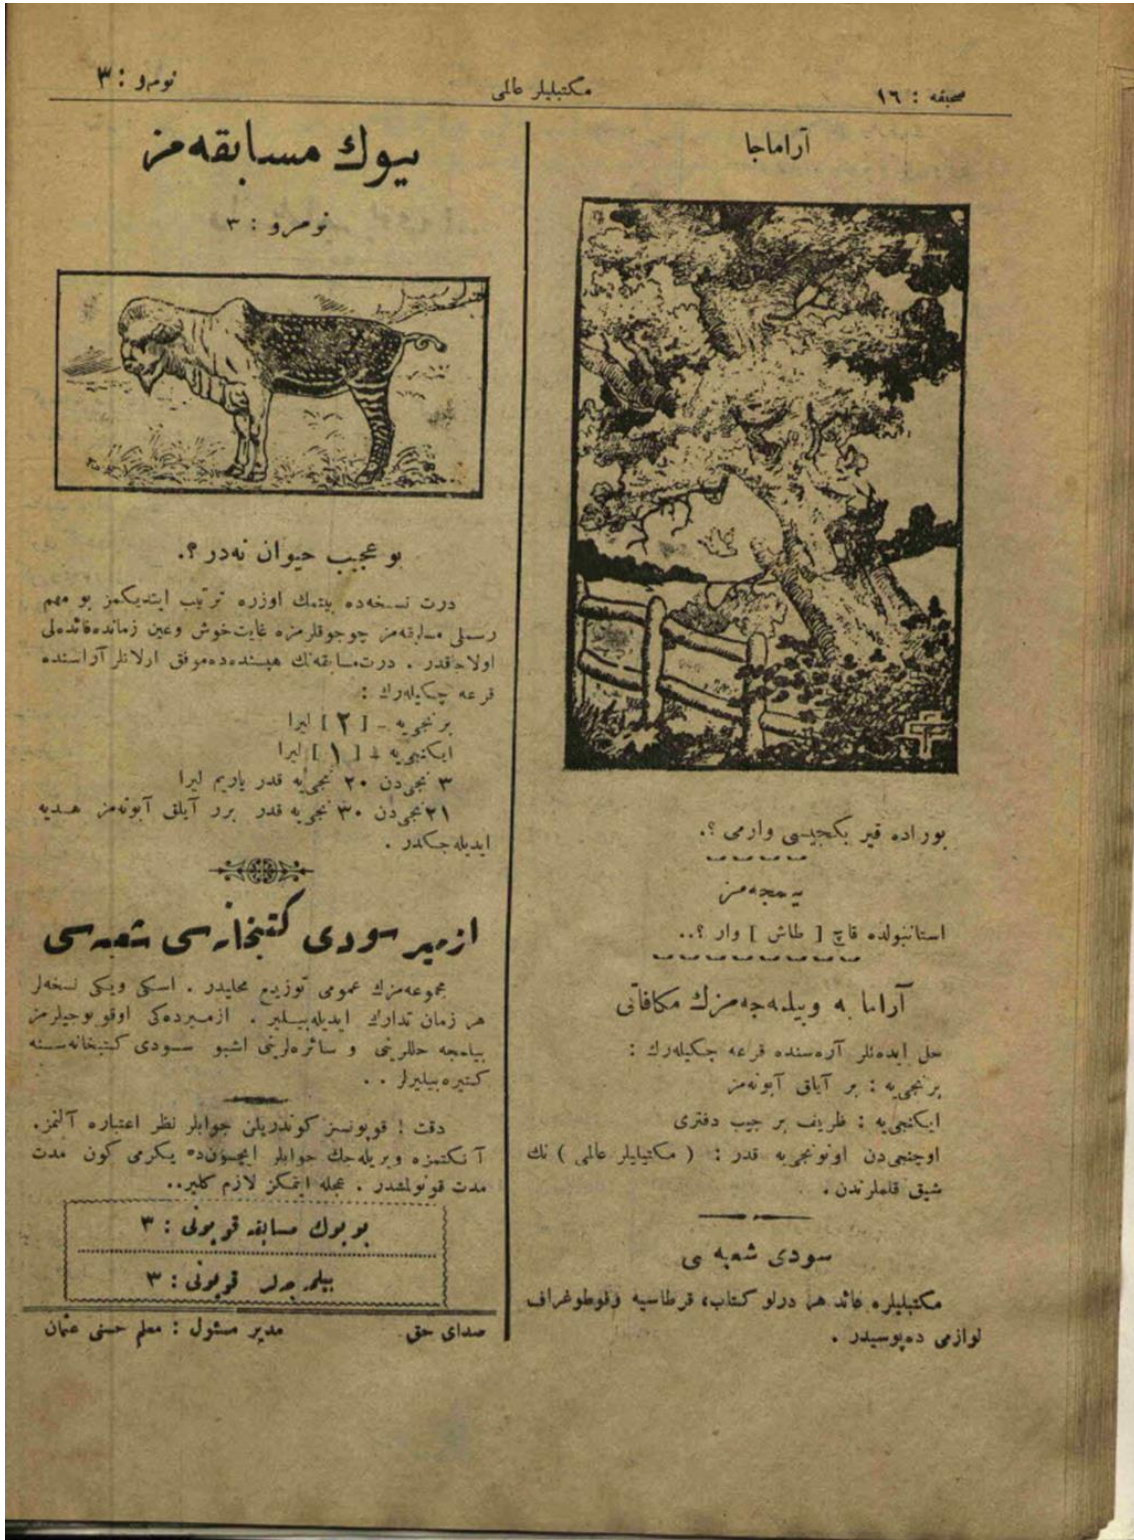 صحیفه : ١٦
مكتبلیلر عالمی
نومرو : ٣
آراماجا
بوراده قیر بكجیسی وارمی ؟.
بیلمجه‌مز
استانبولده قاچ [ طاش ] وار ؟..
آراما به وبیلمه‌جه‌مزك مكافاتی
حل ایده‌نلر آره‌سنده قرعه چكیله‌رك :
برنجی‌یه : بر آیلق آبونه‌مز
ایكنجی‌یه : ظریف بر جیب دفتری
اوچنجی‌دن اونونجی‌یه قدر : ( مكتبلیلر عالمی ) نك
شیق قلملرندن .
سودی شعبه سی
مكتبلیلره عائد هر درلو كتاب، قرطاسیه وفوطوغراف
لوازمی ده‌پوسیدر .
بیوك مسابقه‌مز
نومرو : ٣
بو عجیب حیوان نه‌در ؟.
درت نسخه‌ده بیتمك اوزره ترتیب ایتدیكمز بو مهم
رسملی مسابقه‌مز چوجوقلرمزه غایت خوش وعین زمانده فائده‌لی
اولاجقدر . درت مسابقه‌نك هپسنده‌ده موفق اولانلر آراسنده
قرعه چكیله‌رك :
برنجی‌یه - [ ٢ ] لیرا
ایكنجی‌یه [ ١ ] لیرا
٣ نجی‌دن ٢٠ نجی‌یه قدر یاریم لیرا
٢١ نجی‌دن ٣٠ نجی‌یه قدر برر آیلق آبونه‌مز هدیه
ایدیله‌جكدر .
ازمیر سودی كتبخانه‌سی شعبه‌سی
مجموعه‌مزك عمومی توزیع محلیدر . اسكی ویكی نسخه‌لر
هر زمان تدارك ایدیله‌بیلیر . ازمیرده‌كی اوقویوجیلرمز
بیلمجه حللرینی و سائره‌لرینی اشبو سودی كتبخانه‌سنه
كتیره‌بیلیرلر . .
دقت ! قوپونسز كوندریلن جوابلر نظر اعتباره آلنمز.
آنكتمزه ویریله‌جك جوابلر ایچون‌ده یكرمی كون مدت
مدت قونولمشدر . عجله ایتمكز لازم كلیر..
بویوك مسابقه قوپونی : ٣
بیلمه‌جه‌لر قوپونی : ٣
صدای حق
مدیر مسئول : معلم حسنی عثمان